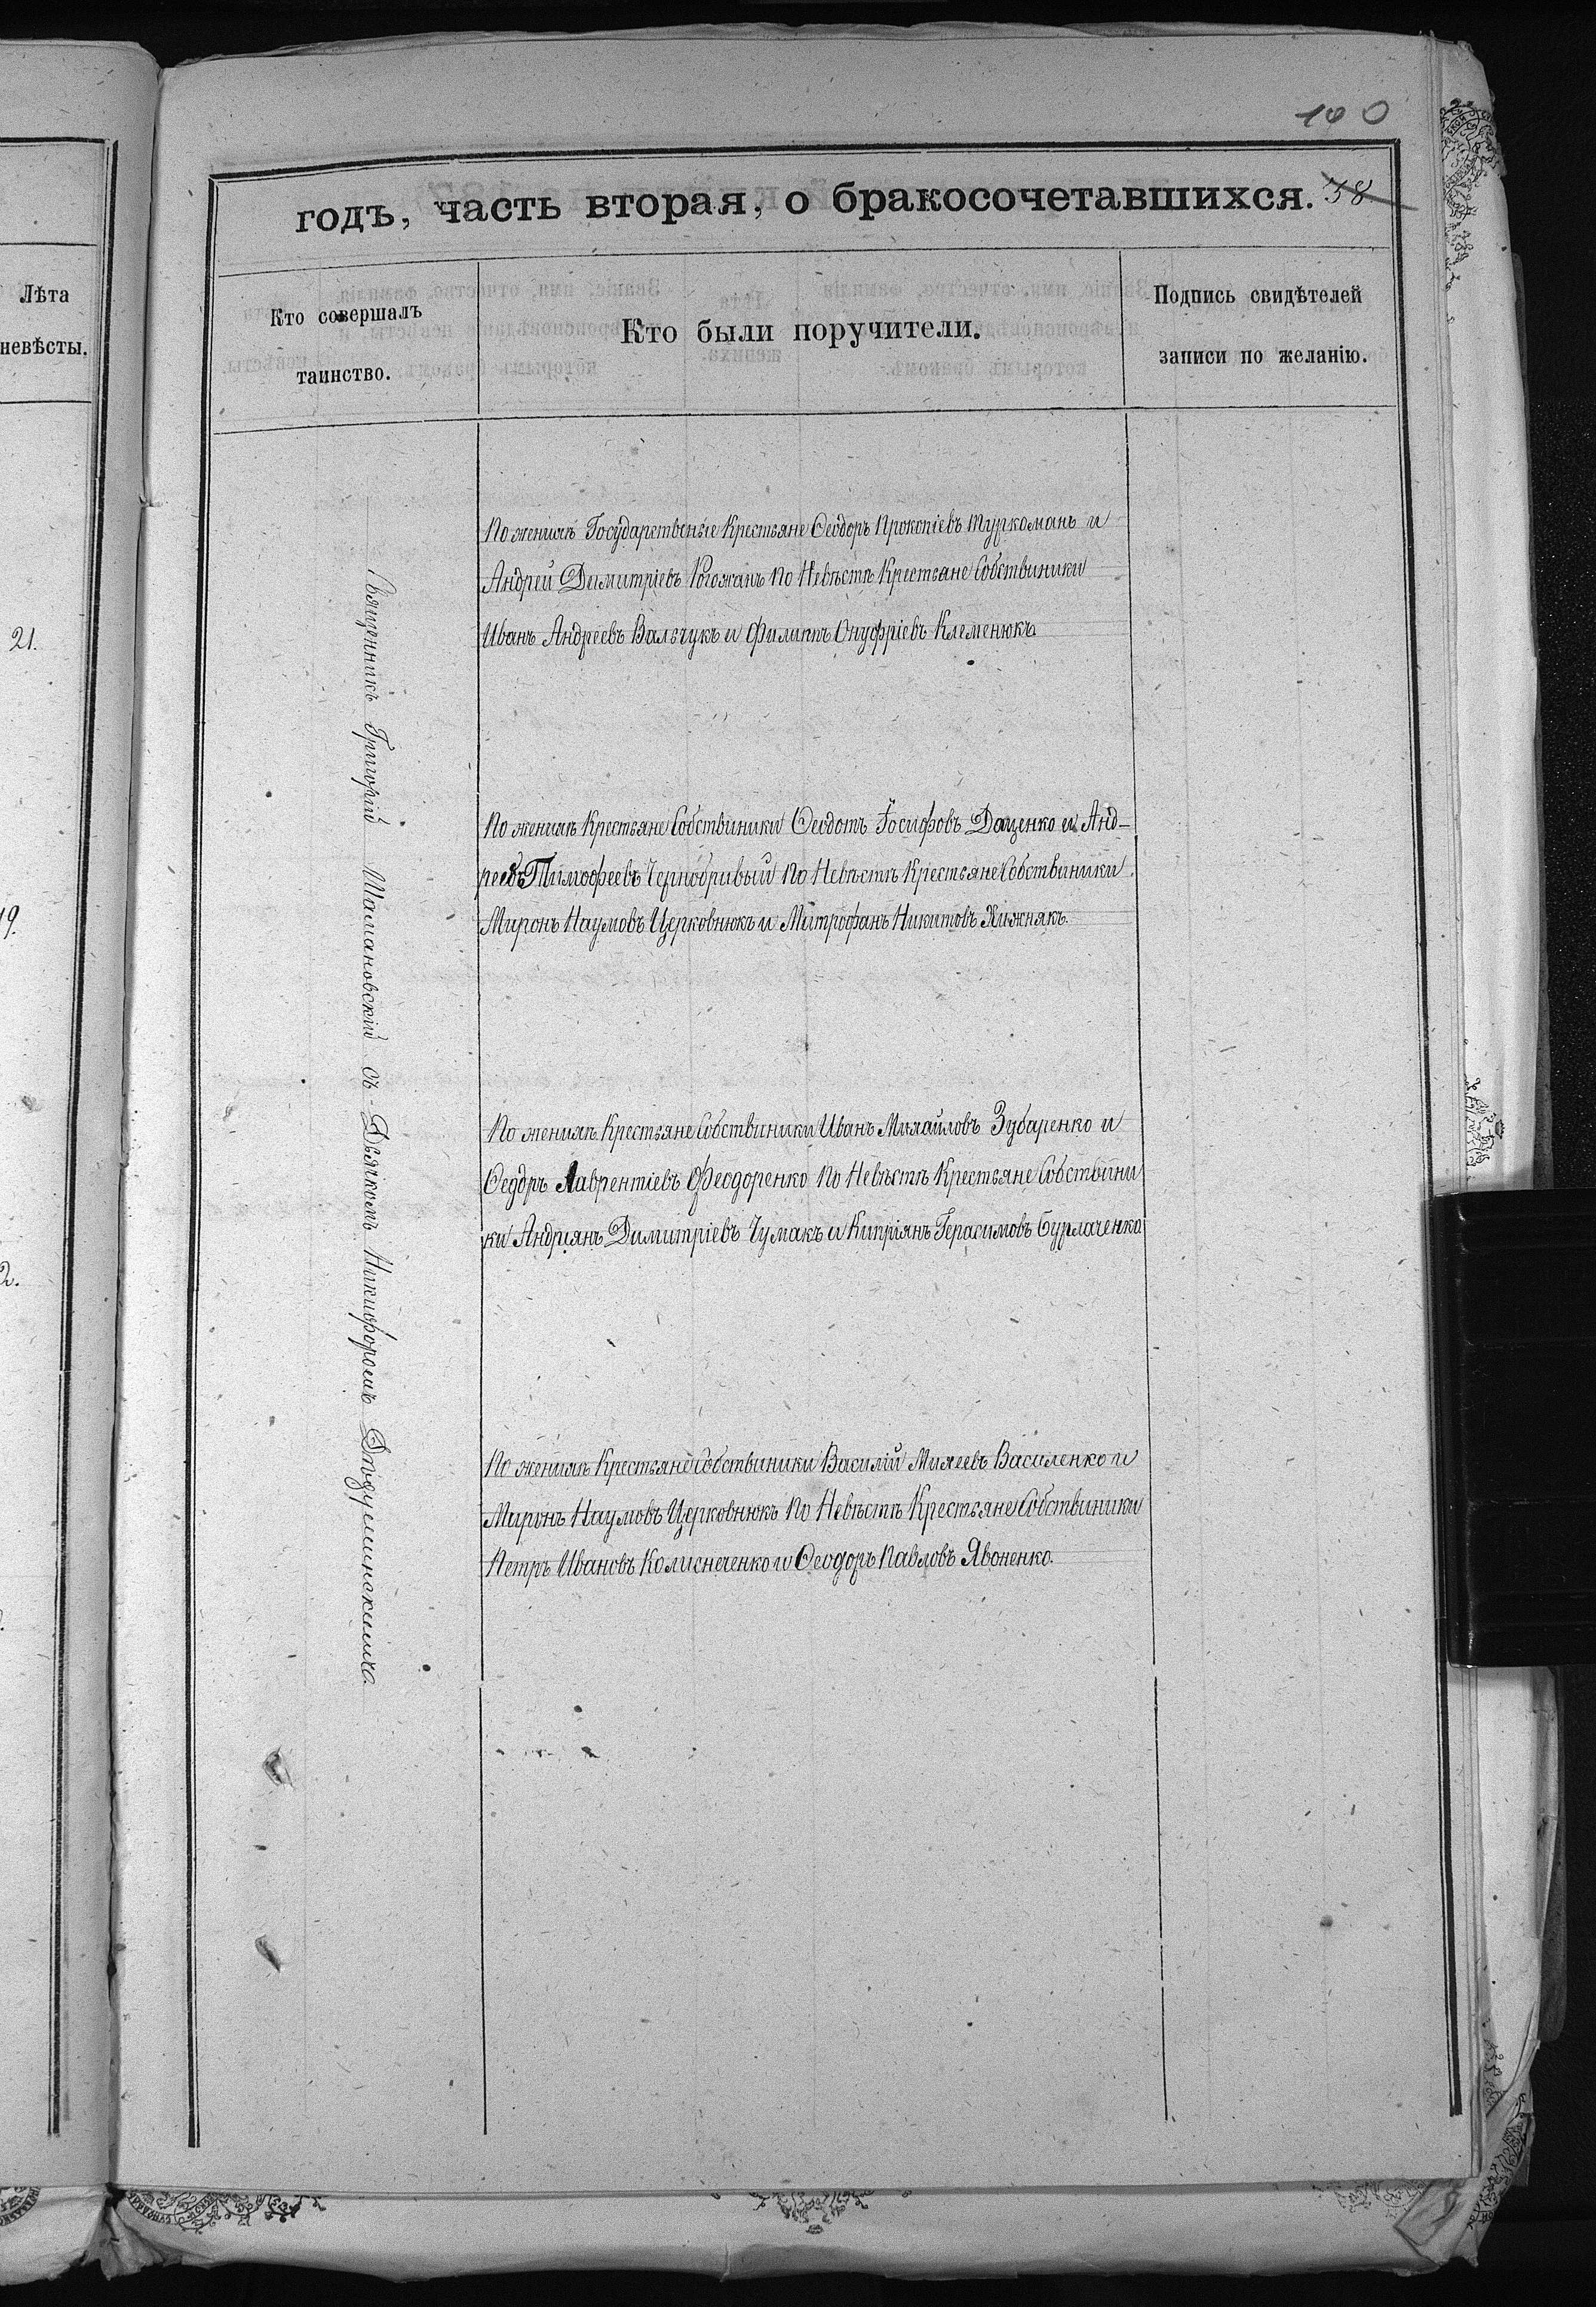 100
годъ, часть вторая, о бракосочетавшихся. 38
Лѣта
невѣсты.
Кто совершалъ
таинство.
Кто были поручители.
Подпись свидѣтелей
записи по желанію.
21.
19.
2.
Священникъ Григорій Шамановскій съ Дьячкомъ Никифоромъ
По женихѣ Государственые Крестьяне Ѳеодоръ Прокопіевъ Туркоманъ и
Андрей Димитріевъ Рогожанъ По Невѣстѣ Крестьяне Собствиники
Иванъ Андреевъ Вальчукъ и Филипъ Онуфріевъ Клеменюкъ.
По женихѣ Крестьяне Собствиники Ѳеодотъ Іосифовъ Даценко и Анд-
рей Тимофеевъ Чернобривый По Невѣстѣ Крестьяне Собствиники
Миронъ Наумовъ Церковнюкъ и Митрофанъ Никитовъ Хижнякъ.
По женихѣ Крестьяне Собствиники Иванъ Михайловъ Зубаренко и
Ѳедоръ Лаврентіевъ Феодоренко По Невѣстѣ Крестьяне Собствини
ки Андріянъ Димитріевъ Чумакъ и Кипріянъ Герасимовъ Бурлаченко
По женихѣ Крестьяне Собствиники Василій Михеевъ Василенко и
Миронъ Наумовъ Церковнюкъ По Невѣстѣ Крестьяне Собствиники
Петръ Ивановъ Колисниченко и Ѳеодоръ Павловъ Явоненко.